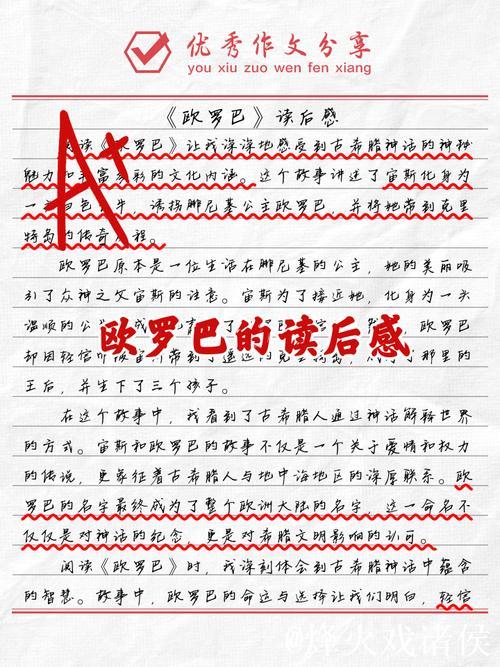 优秀作文分享
you xiu zuo wen fen xiang
《欧罗巴》读后感
阅读《欧罗巴》让我深深地感受到古希腊神话的神秘
魅力和丰富多彩的文化内涵。这个故事讲述了宙斯化身为
一白色牛，诱拐腓尼基公主欧罗巴，并将她带到克里
特岛的传奇历程。
欧罗巴原本是一位生活在腓尼基的公主，她的美丽吸
引了众神之父宙斯的注意。宙斯为了接近她，化身为一头
温顺的公 了 欧罗巴
欧罗巴的读后感
却因轻信 那里的
王后，并生下了三个孩子。
在这个故事中，我看到了古希腊人通过神话解释世界
的方式。宙斯和欧罗巴的故事不仅是一个关于爱情和权力
的传说，更象征着古希腊人与地中海地区的深厚联系。欧
罗巴的名字最终成为了整个欧洲大陆的名字，这一命名不
仅仅是对神话的纪念，更是对希腊文明影响的认可。
阅读《欧罗巴》时，我深刻体会到古希腊神话中蕴含
的智慧。故事中，欧罗巴的命运与选择让我们明白，轻信
A+
@烽火戏诸侯